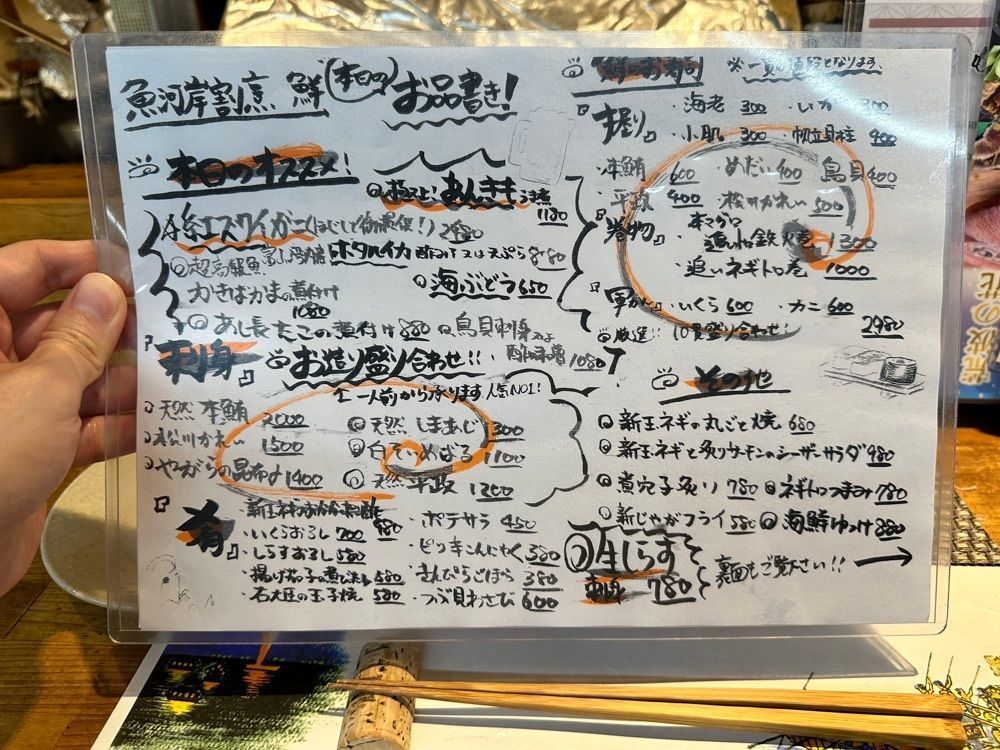 魚河岸割烹 鮮 本日の お品書き!
本日のオススメ!
極上!あんきもうま煮 1180
糸エスワイガニ 2980
ホタルイカ 酢みそ又は天ぷら 880
かきばかまの煮付け
1080
海ぶどう 650
あし長たこの煮付け 880
鳥貝刺身
1080
『刺身』
お造り盛り合わせ!!
一人前から承ります 人気NO1!
天然 本鮪 2000
かれい 1500
やがらの昆布〆 1400
天然 しまあじ
白ていめばる 1100
天然 平政 1200
『肴』
・いくらおろし 700
・しらすおろし 580
・揚げ茄子の煮びたし 580
・玉子焼 580
・ポテサラ 450
・ピリ辛こんにゃく 380
・きんぴらごぼう 380
・つぶ貝わさび 600
鮮のお寿司 ※一貫の値段となります
『握り』
・海老 300 ・いか 300
・小肌 300 ・帆立貝柱 400
・本鮪 600 めだい 400 鳥貝 400
・平政 400 かれい 500
『巻物』
・本マグロ
鉄火巻 1300
・追いネギトロ巻 1000
『軍かん』
・いくら 600 ・カニ 600
厳選!!10貫盛り合わせ 2980
その他
新玉ネギの丸ごと焼 680
新玉ネギと炙りサーモンのシーザーサラダ 980
煮穴子炙り 780
ネギトロつまみ 780
新じゃがフライ 580
海鮮ゆっけ 880
生しらす
刺身 780
裏面もご覧下さい!!
荒波の花